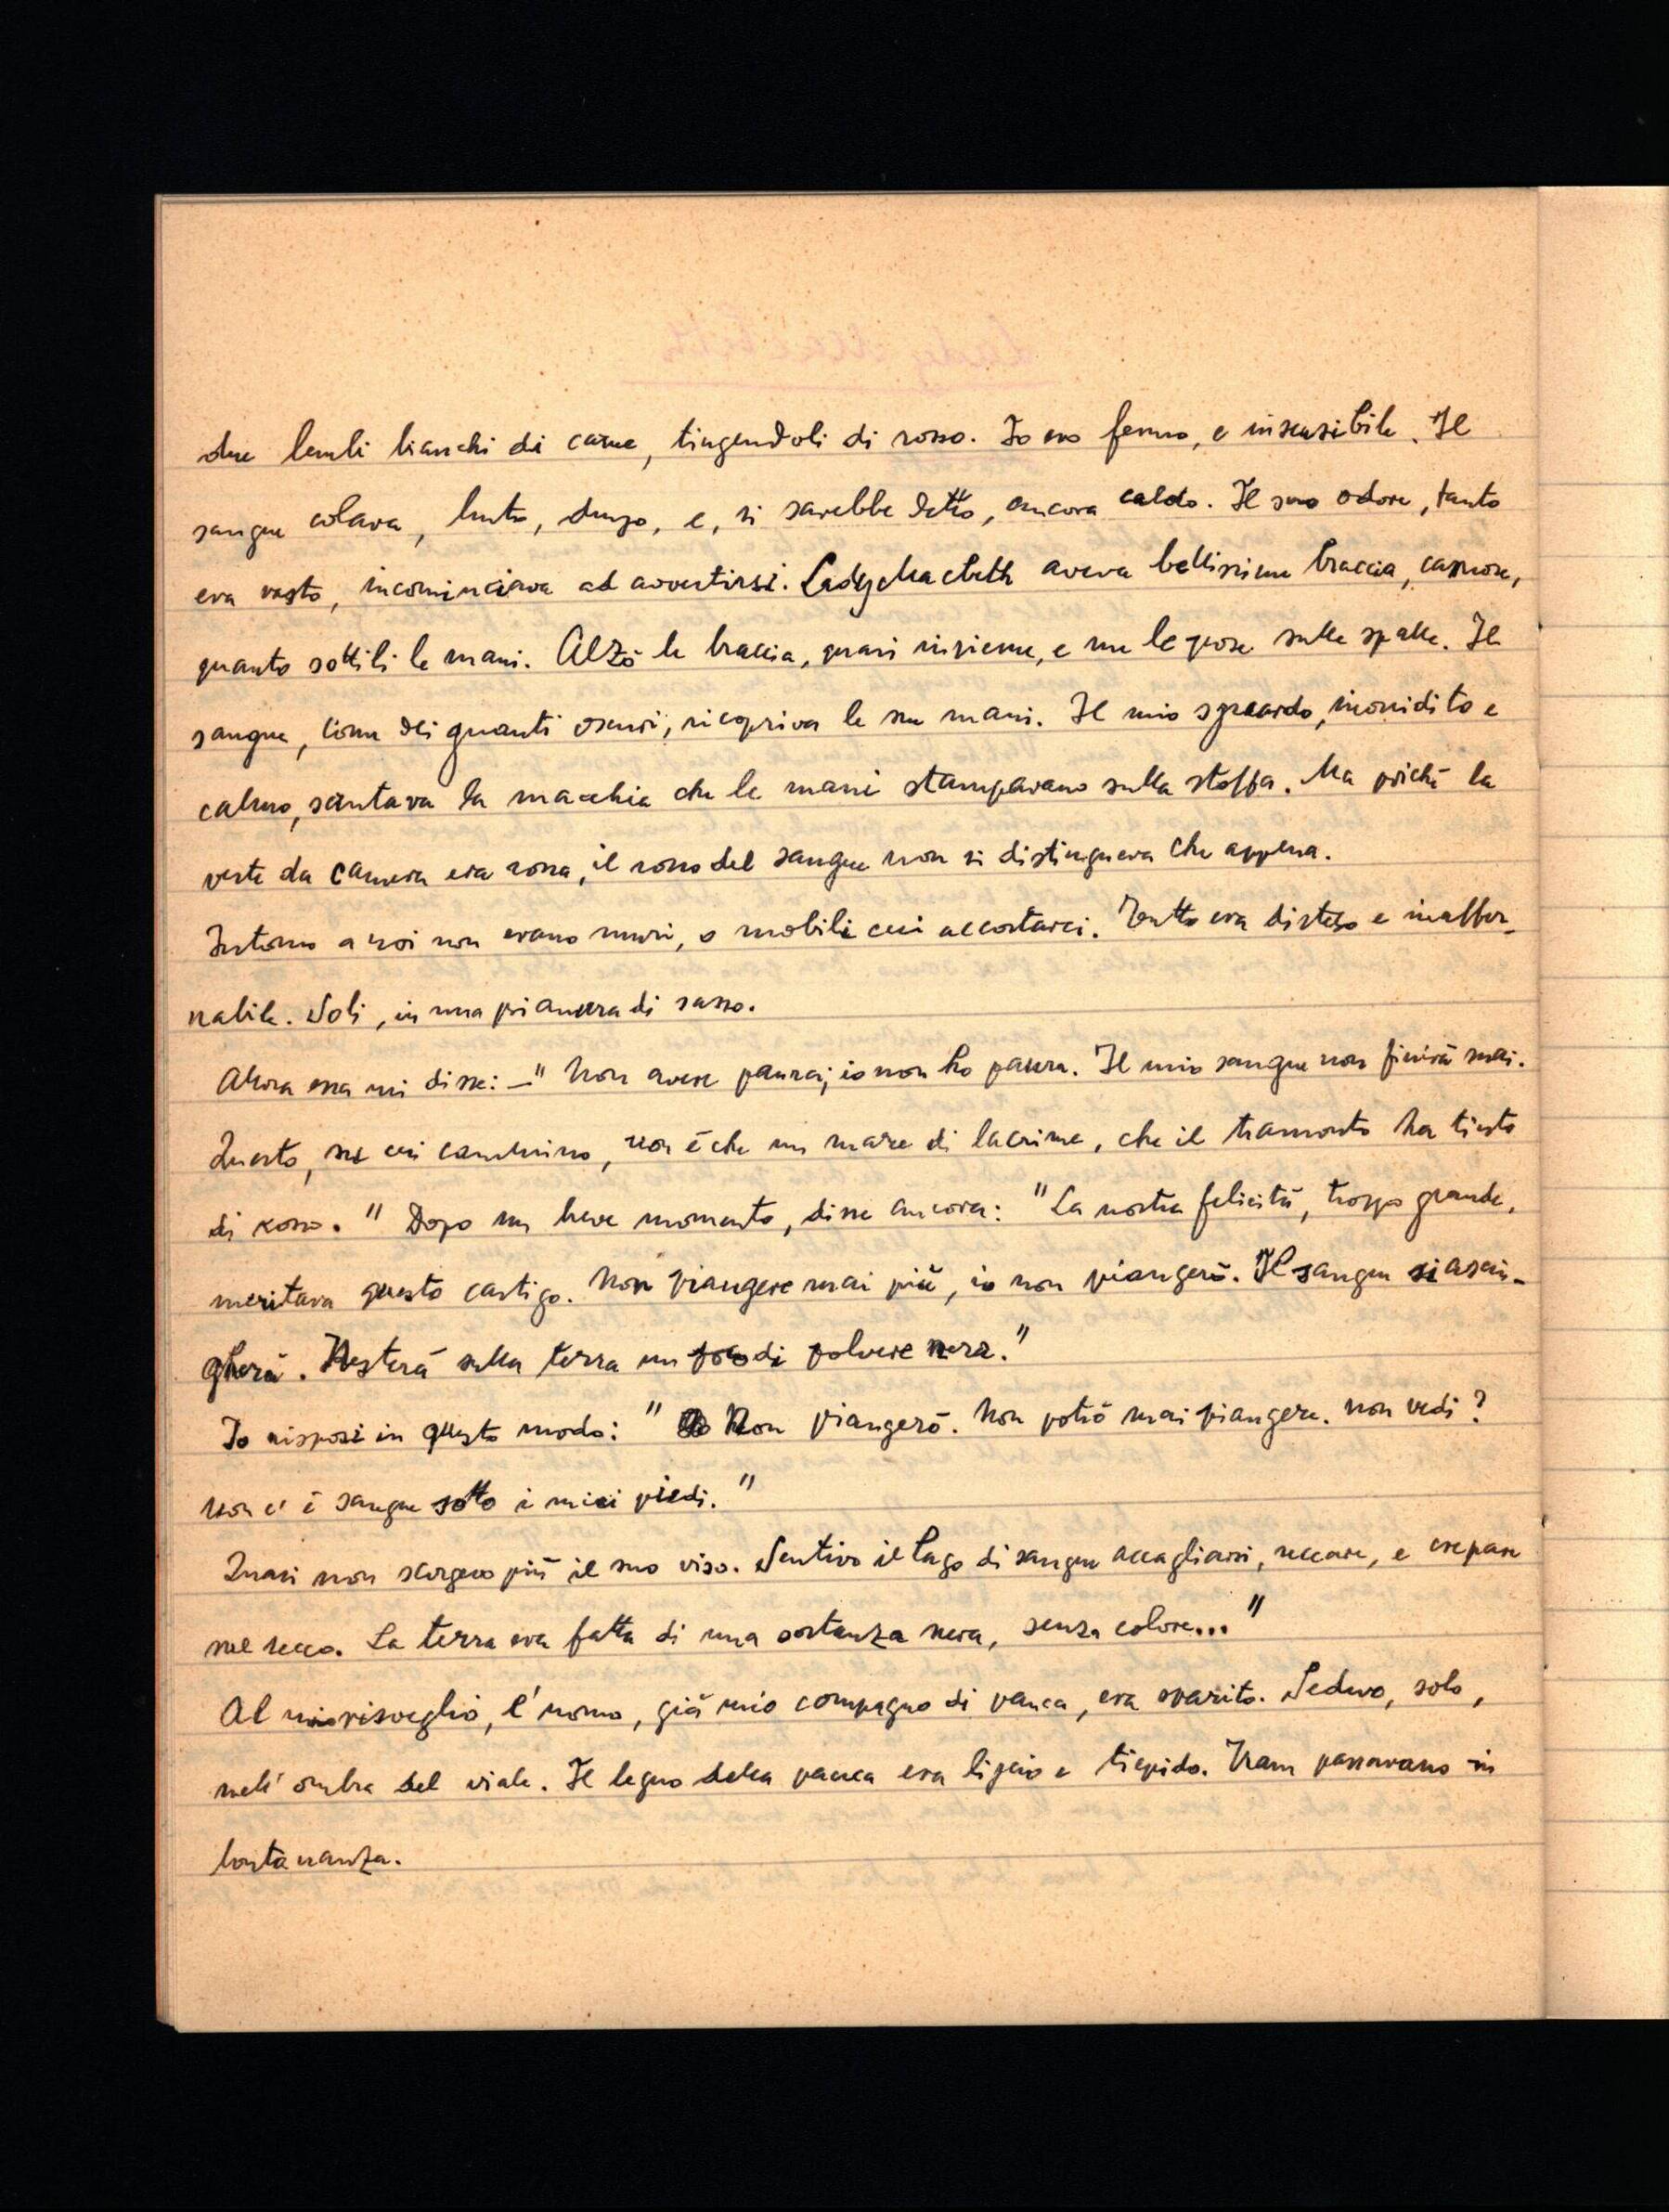 due lembi bianchi di carne, tingendoli di rosso. Io ero fermo, e insensibile. Il
sangue colava, lento, denso, e, si sarebbe detto, ancora caldo. Il suo odore, tanto
era vasto, incominciava ad avvertirsi. Lady Macbeth aveva bellissime braccia, carnose,
quanto sottili le mani. Alzò le braccia, quasi insieme, e me le pose sulle spalle. Il
sangue, come dei guanti oscuri, ricopriva le sue mani. Il mio sguardo, inorridito e
calmo, scrutava la macchia che le mani stampavano sulla stoffa. Ma poichè la
veste da camera era rossa, il rosso del sangue non si distingueva che appena.
Intorno a noi non erano muri, o mobili cui accostarci. Tutto era disteso e inaffer-
rabile. Soli, in una pianura di sasso.
Allora essa mi disse: — " Non avere paura; io non ho paura. Il mio sangue non finirà mai.
Questo, su cui cammino, non è che un mare di lacrime, che il tramonto ha tinto
di rosso. " Dopo un breve momento, disse ancora: " La nostra felicità, troppo grande,
meritava questo castigo. Non piangere mai più, io non piangerò. Il sangue si asciu-
gherà. Resterà sulla terra un poco di polvere nera. "
Io risposi in questo modo: " Non piangerò. Non potrò mai piangere. Non vedi?
Non c'è sangue sotto i miei piedi. "
Quasi non scorgevo più il suo viso. Sentivo il lago di sangue accagliarsi, seccare, e crepare
nel secco. La terra era fatta di una sostanza nera, senza colore... "
Al mio risveglio, l'uomo, già mio compagno di panca, era sparito. Sedevo, solo,
nell'ombra del viale. Il legno della panca era ligio e tiepido. Tram passavano in
lontananza.